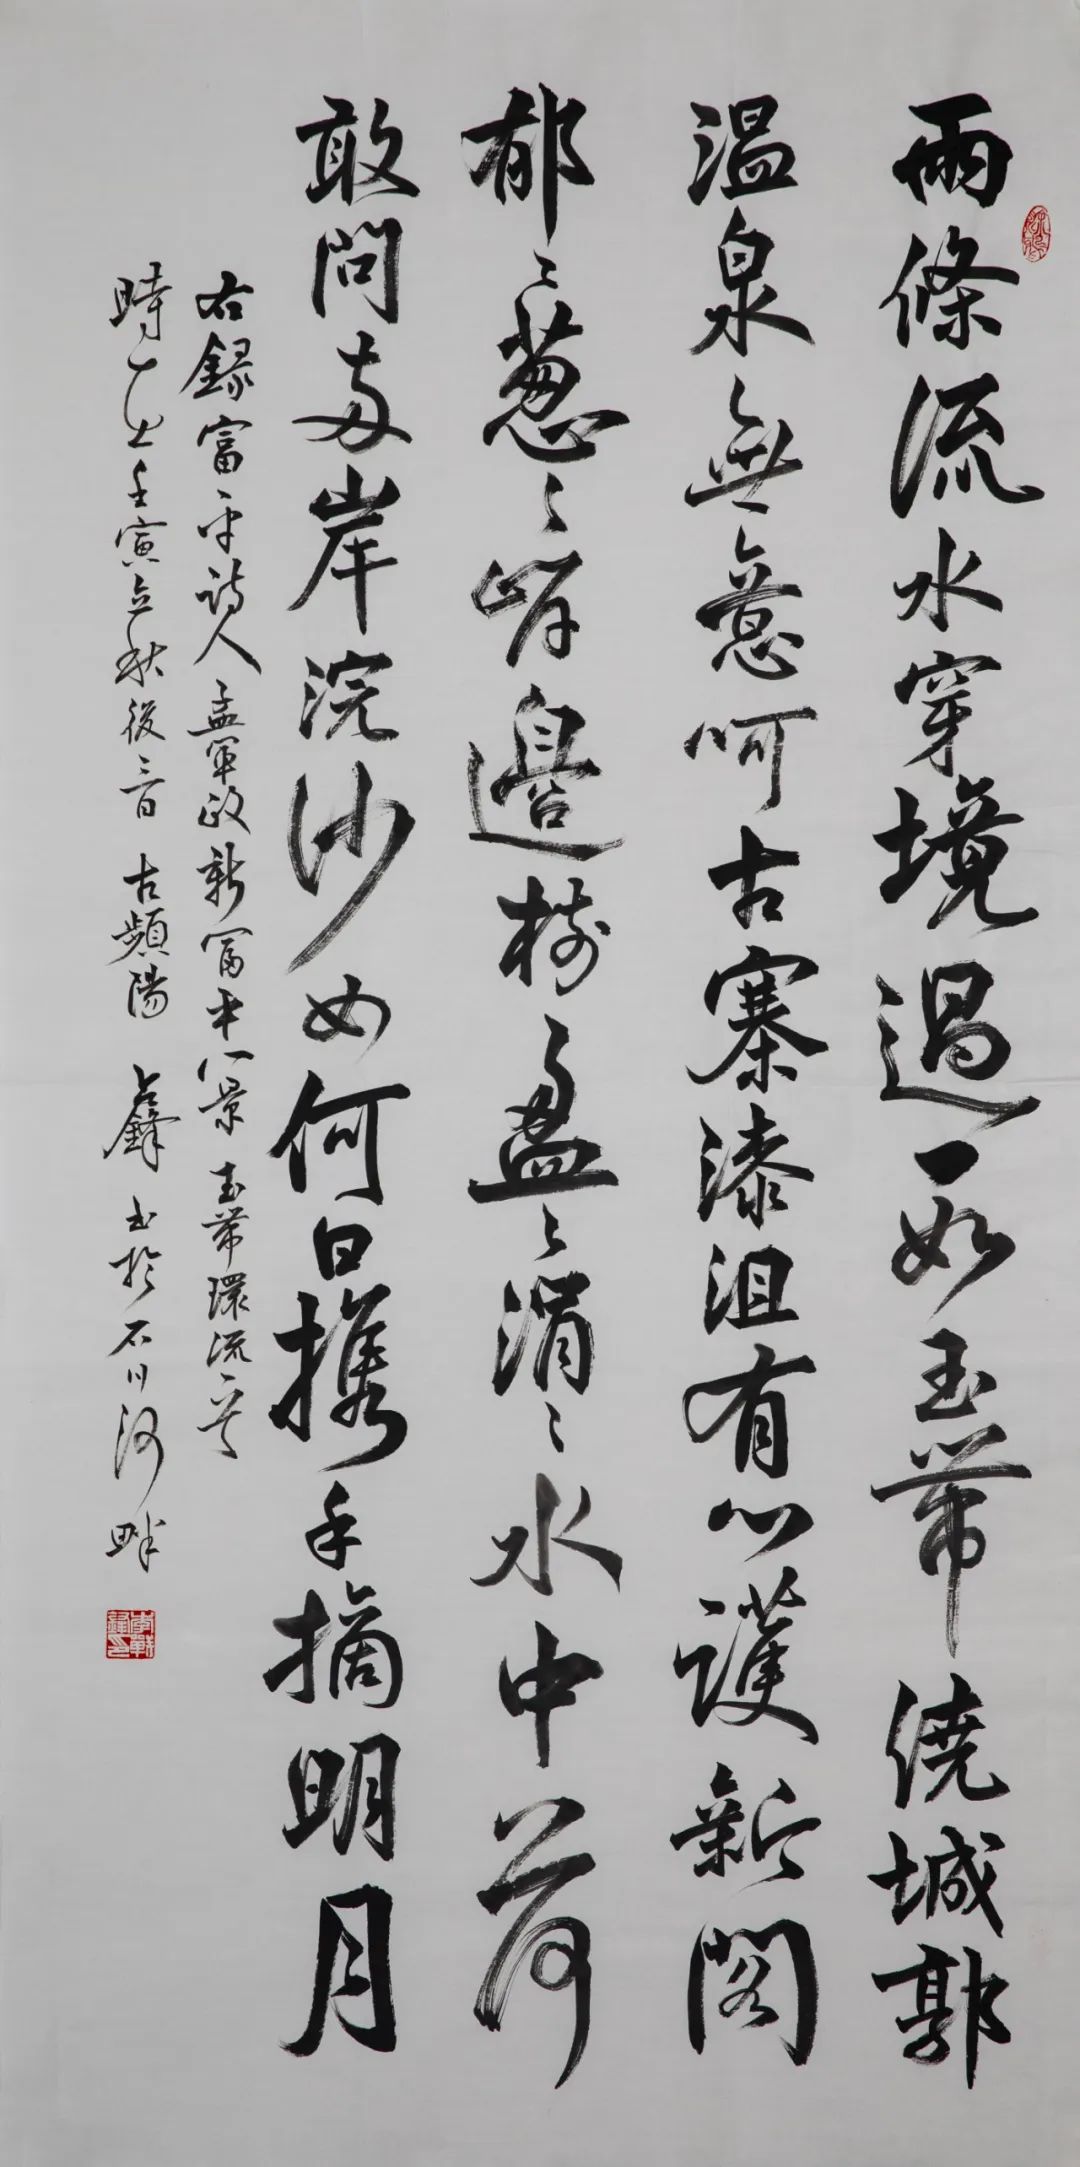 兩條流水穿境過一如玉帶繞城郭
溫泉無意呵古寨漆沮有心護新閣
郁〻葱〻岸邊樹盈〻淌〻水中荷
敢問兩岸浣沙女何日攜手摘明月
右錄富平詩人孟軍政新富平八景玉帶環流
時壬寅立秋後三日古頻陽鋒書於石川河畔